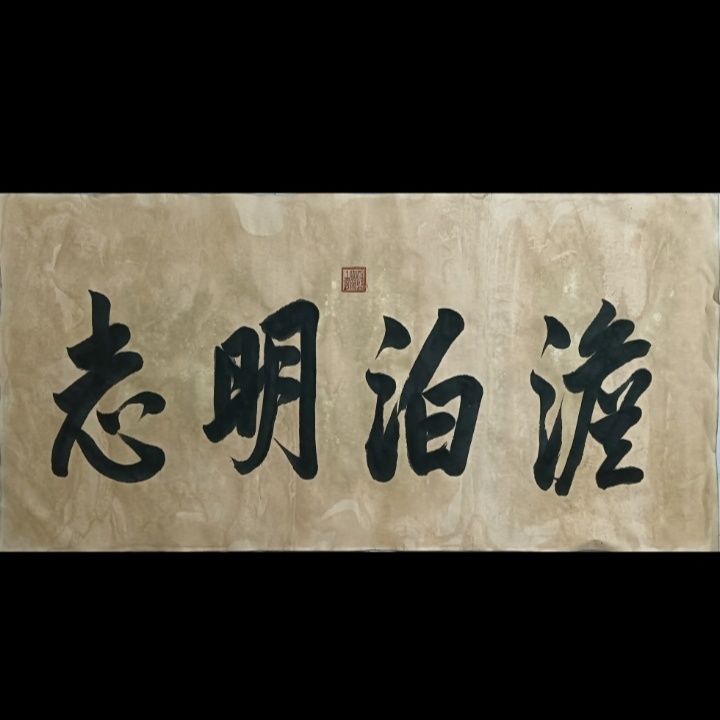 澹泊明志